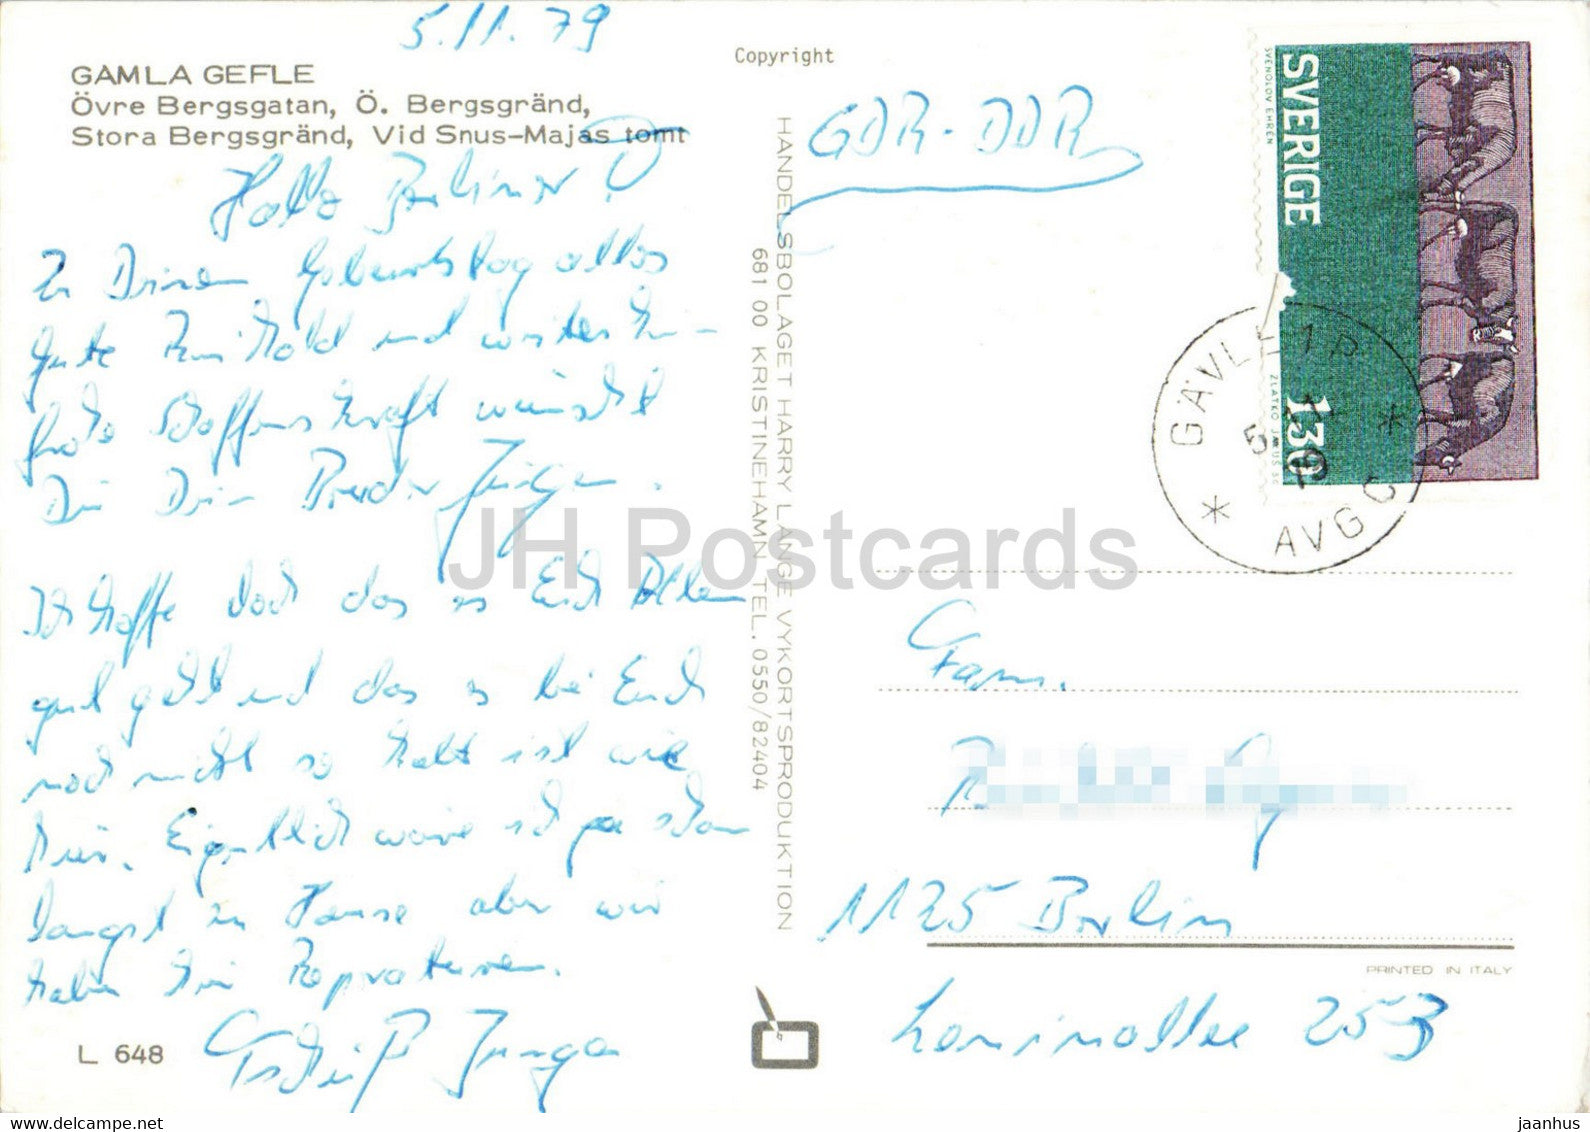 5.11.79
GAMLA GEFLE
Övre Bergsgatan, Ö. Bergsgränd,
Stora Bergsgränd, Vid Snus-Majas tomt
Hallo Berliner
Zu Deinem Geburtstag alles
Gute und weiterhin
frohe Schaffenskraft wünscht
Dir Dein Bruder Jürgen.
Ich hoffe doch das es Euch Allen
gut geht und das es bei Euch
noch nicht so kalt ist wie
hier. Eigentlich wäre ich ja schon
längst zu Hause aber wir
haben hier Reparaturen.
Tschüß Jürgen
L 648
Copyright
HANDELSBOLAGET HARRY LANGE VYKORTSPRODUKTION
681 00 KRISTINEHAMN TEL. 0550/82404
GDR-DDR
SVERIGE
SVENOLOV EHRÉN
130
ZLATKO JAKUS SC
GÄVLE 1
5
79
AVG
Fam.
1125 Berlin
253
PRINTED IN ITALY
JH Postcards
jaanhus @ www.delcampe.net